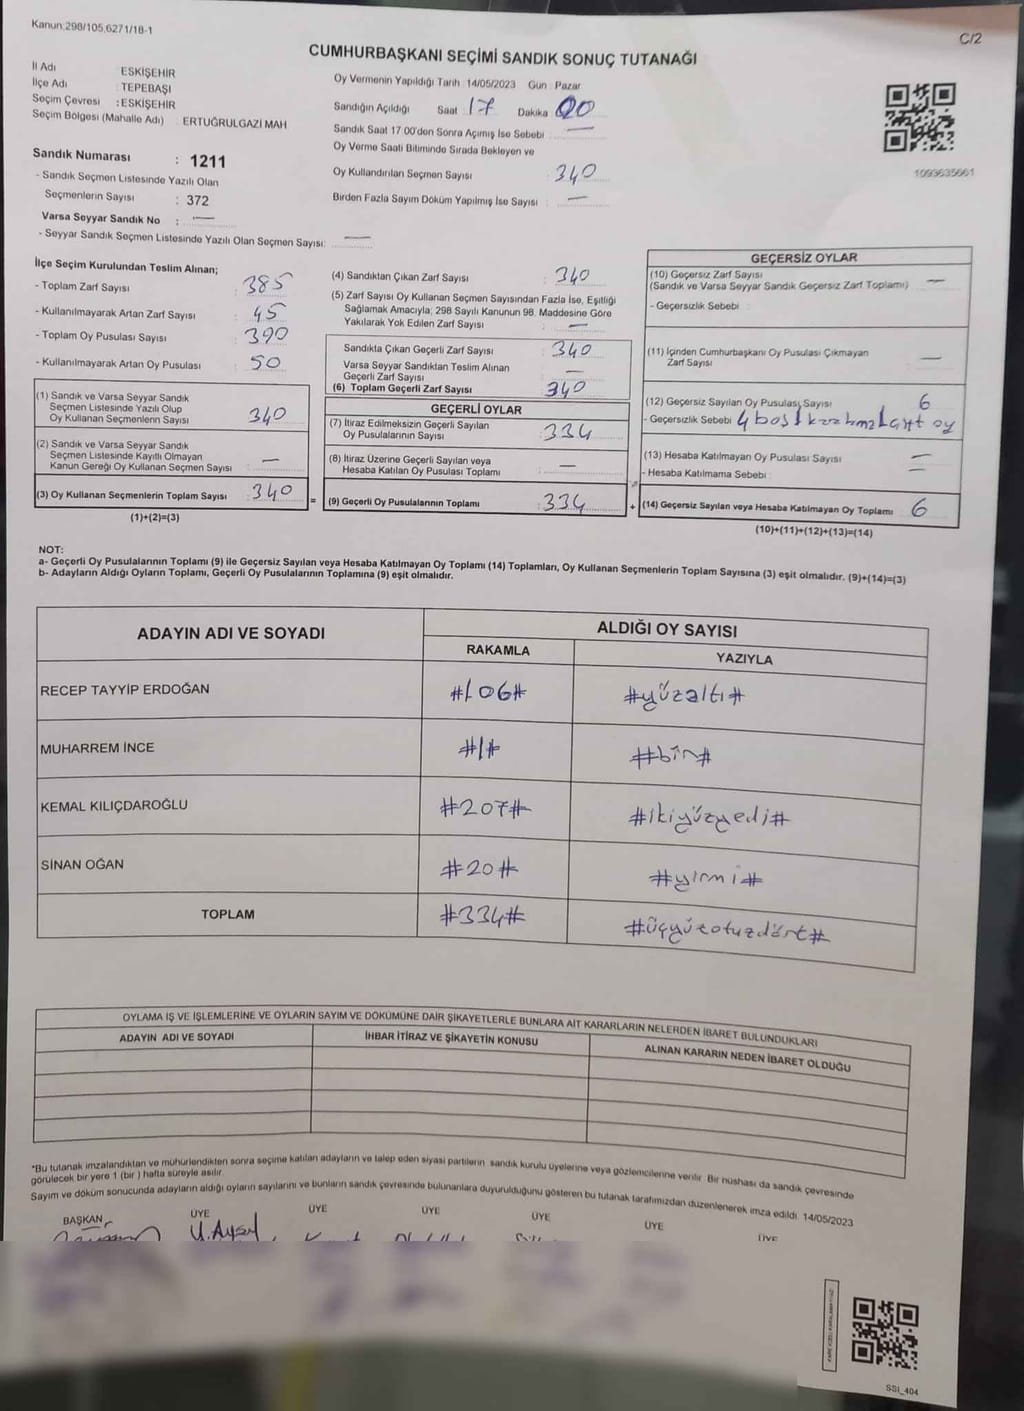 Kanun:298/105,6271/18-1
C/2
CUMHURBAŞKANI SEÇİMİ SANDIK SONUÇ TUTANAĞI
İl Adı ESKİŞEHİR
İlçe Adı : TEPEBAŞI
Seçim Çevresi : ESKİŞEHİR
Seçim Bölgesi (Mahalle Adı) : ERTUĞRULGAZİ MAH
Sandık Numarası : 1211
- Sandık Seçmen Listesinde Yazılı Olan
Seçmenlerin Sayısı : 372
Varsa Seyyar Sandık No : —
- Seyyar Sandık Seçmen Listesinde Yazılı Olan Seçmen Sayısı: —
Oy Vermenin Yapıldığı Tarih : 14/05/2023 Gün : Pazar
Sandığın Açıldığı Saat 17 Dakika 00
Sandık Saat 17.00'den Sonra Açımış İse Sebebi : —
Oy Verme Saati Bitiminde Sırada Bekleyen ve
Oy Kullandırılan Seçmen Sayısı : 340
Birden Fazla Sayım Döküm Yapılmış İse Sayısı : —
1093635661
İlçe Seçim Kurulundan Teslim Alınan;
- Toplam Zarf Sayısı : 385
- Kullanılmayarak Artan Zarf Sayısı : 45
- Toplam Oy Pusulası Sayısı : 390
- Kullanılmayarak Artan Oy Pusulası : 50
(1) Sandık ve Varsa Seyyar Sandık
Seçmen Listesinde Yazılı Olup
Oy Kullanan Seçmenlerin Sayısı : 340
(2) Sandık ve Varsa Seyyar Sandık
Seçmen Listesinde Kayıtlı Olmayan
Kanun Gereği Oy Kullanan Seçmen Sayısı : —
(3) Oy Kullanan Seçmenlerin Toplam Sayısı : 340
(1)+(2)=(3)
(4) Sandıktan Çıkan Zarf Sayısı : 340
(5) Zarf Sayısı Oy Kullanan Seçmen Sayısından Fazla İse, Eşitliği
Sağlamak Amacıyla; 298 Sayılı Kanunun 98. Maddesine Göre
Yakılarak Yok Edilen Zarf Sayısı : —
Sandıkta Çıkan Geçerli Zarf Sayısı : 340
Varsa Seyyar Sandıktan Teslim Alınan
Geçerli Zarf Sayısı : —
(6) Toplam Geçerli Zarf Sayısı : 340
GEÇERLİ OYLAR
(7) İtiraz Edilmeksizin Geçerli Sayılan
Oy Pusulalarının Sayısı : 334
(8) İtiraz Üzerine Geçerli Sayılan veya
Hesaba Katılan Oy Pusulası Toplamı : —
= (9) Geçerli Oy Pusulalarının Toplamı : 334
GEÇERSİZ OYLAR
(10) Geçersiz Zarf Sayısı
(Sandık ve Varsa Seyyar Sandık Geçersiz Zarf Toplamı) : —
- Geçersizlik Sebebi :
(11) İçinden Cumhurbaşkanı Oy Pusulası Çıkmayan
Zarf Sayısı : —
(12) Geçersiz Sayılan Oy Pusulası Sayısı : 6
- Geçersizlik Sebebi : 4 boş 1 oy
(13) Hesaba Katılmayan Oy Pusulası Sayısı : —
- Hesaba Katılmama Sebebi : —
+ (14) Geçersiz Sayılan veya Hesaba Katılmayan Oy Toplamı : 6
(10)+(11)+(12)+(13)=(14)
NOT:
a- Geçerli Oy Pusulalarının Toplamı (9) ile Geçersiz Sayılan veya Hesaba Katılmayan Oy Toplamı (14) Toplamları, Oy Kullanan Seçmenlerin Toplam Sayısına (3) eşit olmalıdır. (9)+(14)=(3)
b- Adayların Aldığı Oyların Toplamı, Geçerli Oy Pusulalarının Toplamına (9) eşit olmalıdır.
ADAYIN ADI VE SOYADI
ALDIĞI OY SAYISI
RAKAMLA YAZIYLA
RECEP TAYYİP ERDOĞAN #106# #yüzaltı#
MUHARREM İNCE #1# #bir#
KEMAL KILIÇDAROĞLU #207# #ikiyüzyedi#
SİNAN OĞAN #20# #yirmi#
TOPLAM #334# #üçyüzotuzdört#
OYLAMA İŞ VE İŞLEMLERİNE VE OYLARIN SAYIM VE DÖKÜMÜNE DAİR ŞİKAYETLERLE BUNLARA AİT KARARLARIN NELERDEN İBARET BULUNDUKLARI
ADAYIN ADI VE SOYADI İHBAR İTİRAZ VE ŞİKAYETİN KONUSU ALINAN KARARIN NEDEN İBARET OLDUĞU
*Bu tutanak imzalandıktan ve mühürlendikten sonra seçime katılan adayların ve talep eden siyasi partilerin sandık kurulu üyelerine veya gözlemcilerine verilir. Bir nüshası da sandık çevresinde
görülecek bir yere 1 (bir ) hafta süreyle asılır.
Sayım ve döküm sonucunda adayların aldığı oyların sayılarını ve bunların sandık çevresinde bulunanlara duyurulduğunu gösteren bu tutanak tarafımızdan düzenlenerek imza edildi. 14/05/2023
BAŞKAN ÜYE ÜYE ÜYE ÜYE ÜYE ÜYE
U.Aysel
SSI_404